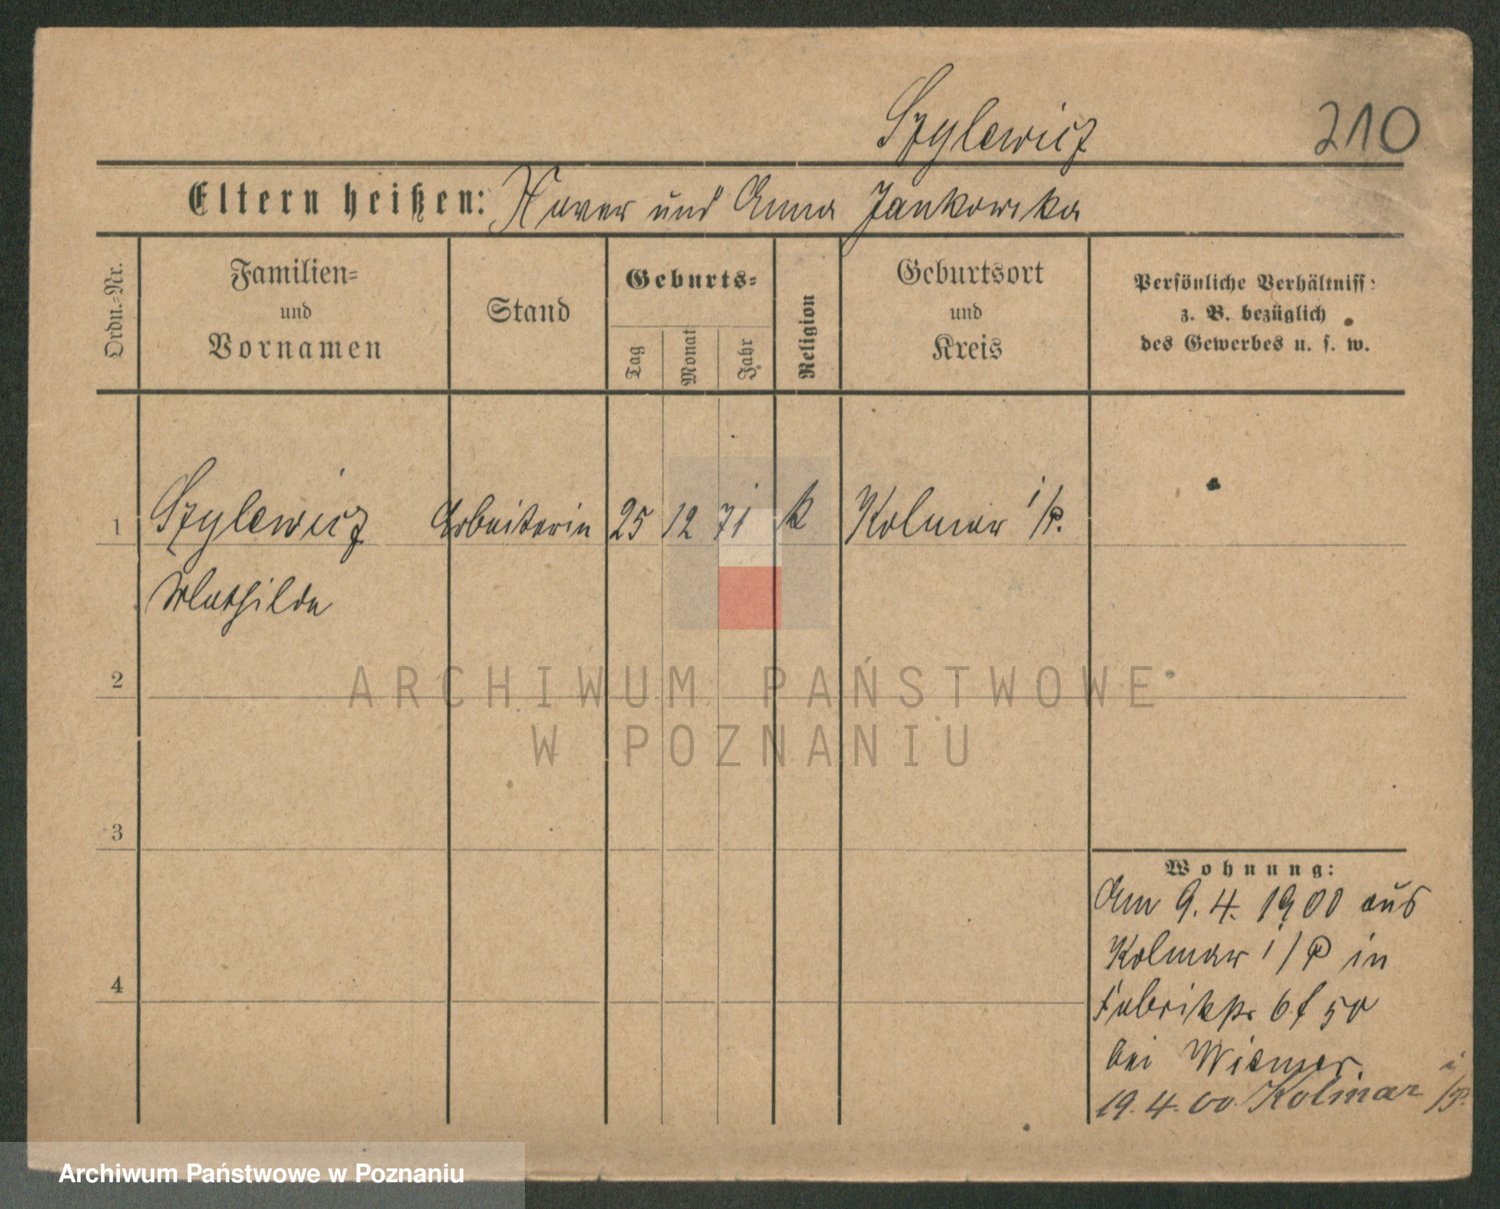 Szylewicz
210
Eltern heißen: Xaver und Anna Jankowska
Ordn.-Nr.
Familien-
und
Vornamen
Stand
Geburts-
Tag
Monat
Jahr
Religion
Geburtsort
und
Kreis
Persönliche Verhältniss:
z. B. bezüglich
des Gewerbes u. s. w.
1 Szylewicz Arbeiterin 25 12 71 k Kolmar i/P.
Mathilde
2
3
4
Wohnung:
Am 9.4.1900 aus
Kolmar i/P in
Fabrikstr 50
bei Wiemer
19.4.00 Kolmar i/P.
ARCHIWUM PAŃSTWOWE
W POZNANIU
Archiwum Państwowe w Poznaniu